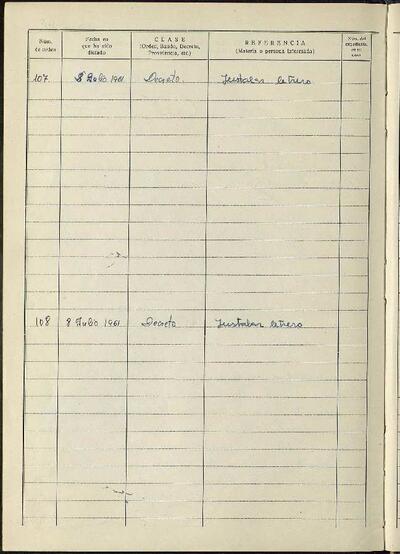 Núm. de orden
Fecha en que ha sido dictado
CLASE
(Orden, Bando, Decreto, Providencia, etc.)
REFERENCIA
(Materia o persona interesada)
Núm. del expediente en su caso
107 8 Julio 1961 Decreto. Instalar letrero.
108 8 Julio 1961 Decreto Instalar letrero